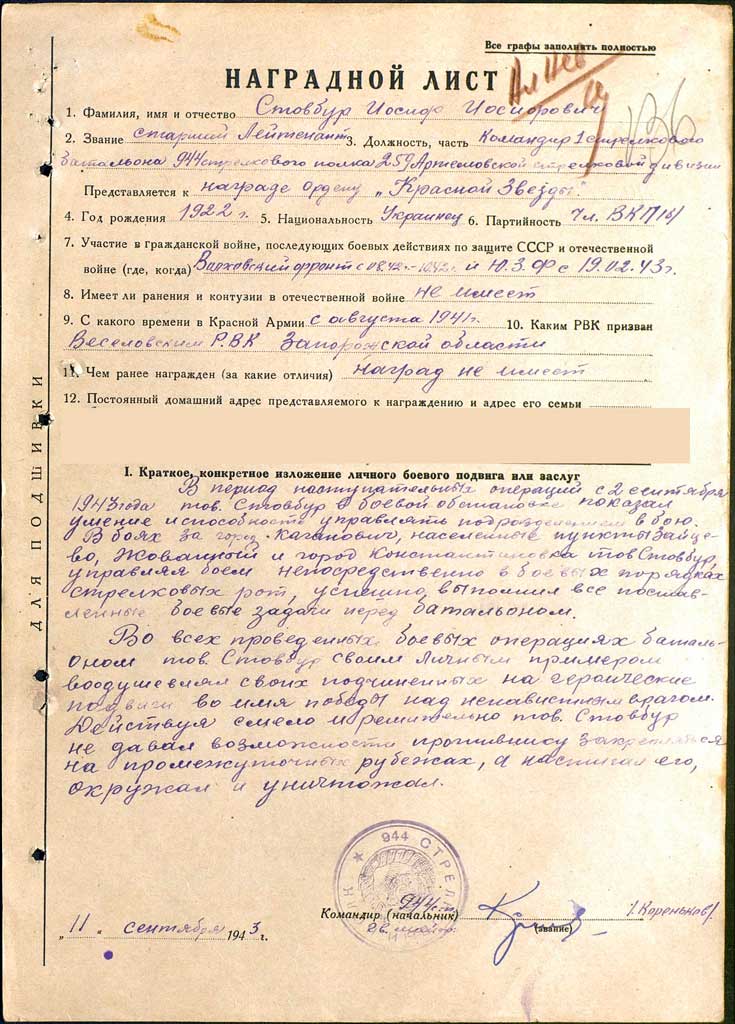 Все графы заполнять полностью
НАГРАДНОЙ ЛИСТ
1. Фамилия, имя и отчество Стовбур Иосиф Иосифович
2. Звание старший Лейтенант 3. Должность, часть Командир 1 стрелкового
батальона 944 стрелкового полка 259 Артемовской стрелковой дивизии
Представляется к награде ордену „Красной Звезды"
4. Год рождения 1922 г. 5. Национальность Украинец 6. Партийность Чл. ВКП/б/
7. Участие в гражданской войне, последующих боевых действиях по защите СССР и отечественной
войне (где, когда) Волховский фронт с 08.42г.-10.42г. и Ю.З.Ф с 19.02.43г.
8. Имеет ли ранения и контузии в отечественной войне не имеет
9. С какого времени в Красной Армии с августа 1941г. 10. Каким РВК призван
Веселовским РВК Запорожской области
11. Чем ранее награжден (за какие отличия) наград не имеет
12. Постоянный домашний адрес представляемого к награждению и адрес его семьи
I. Краткое, конкретное изложение личного боевого подвига или заслуг
В период наступательных операций с 2 сентября
1943 года тов. Стовбур в боевой обстановке показал
умение и способность управлять подразделением в бою.
В боях за город Каганович, населенные пункты Зайце-
во, Жованный и город Константиновка тов Стовбур,
управляя боем непосредственно в боевых порядках
стрелковых рот, успешно выполнил все постав-
ленные боевые задачи перед батальоном.
Во всех проведенных боевых операциях баталь-
оном тов. Стовбур своим личным примером
воодушевлял своих подчиненных на героические
подвиги во имя победы над ненавистным врагом.
Действуя смело и решительно тов. Стовбур
не давал возможности противнику закрепляться
на промежуточных рубежах, а настигал его,
окружал и уничтожал.
ДЛЯ ПОДШИВКИ
944 СТРЕЛК
944 сп
Командир (начальник) /Кореньков/
Гв. майор (звание)
„11" сентября 1943 г.